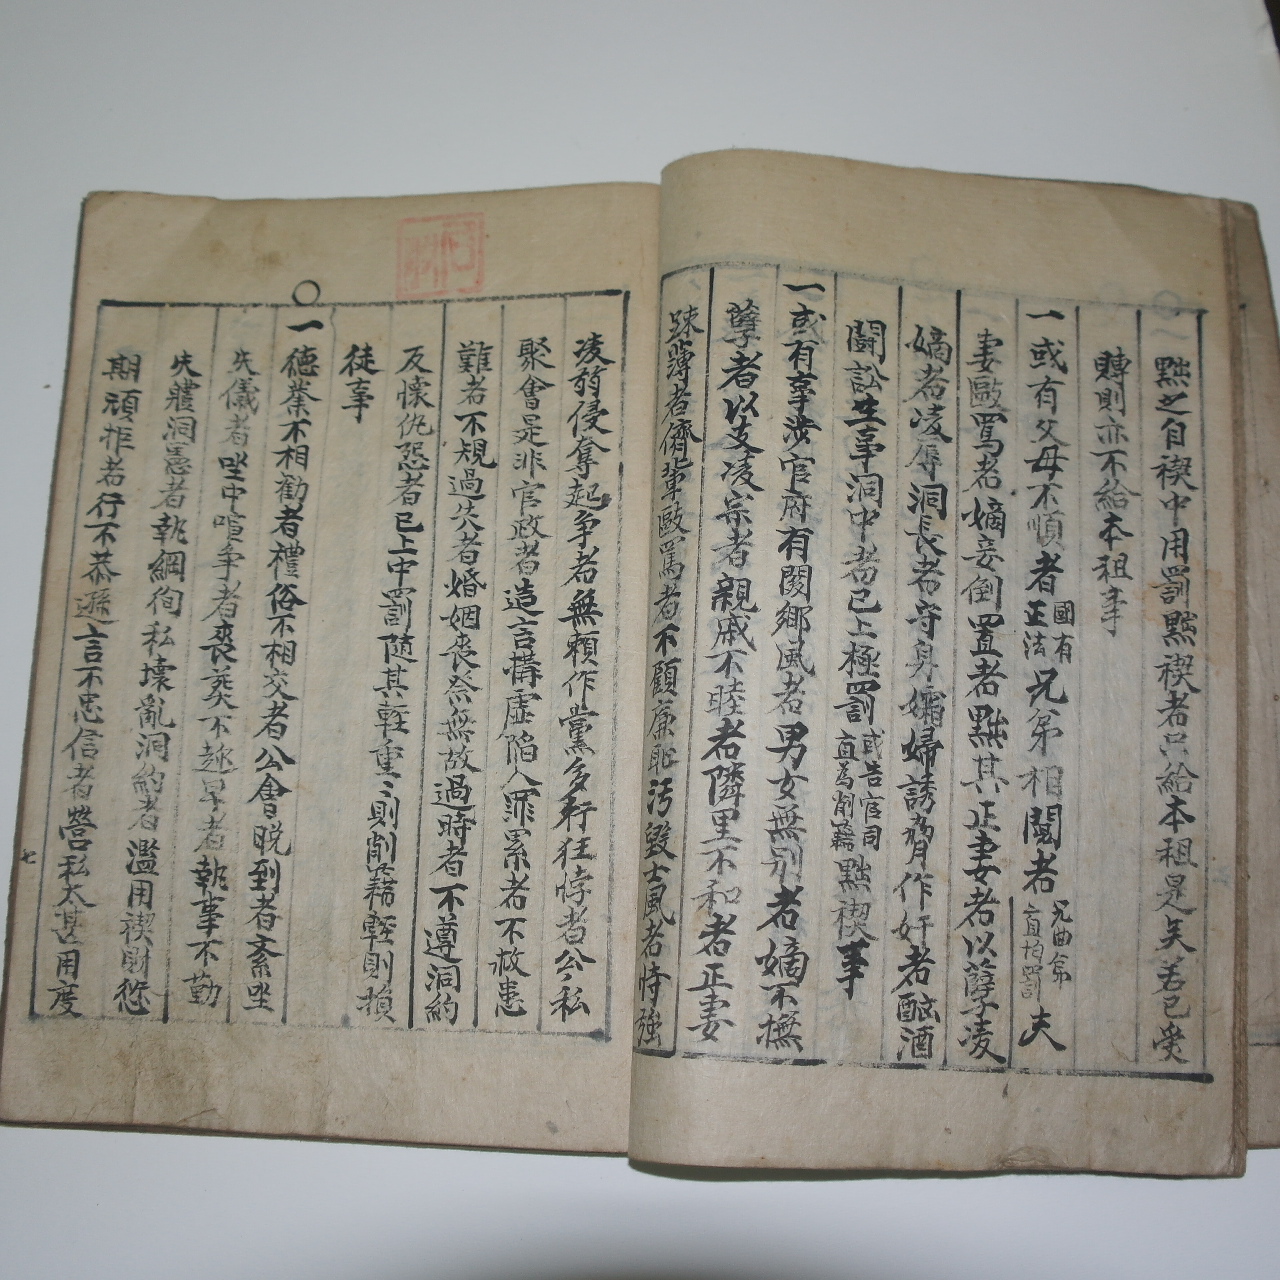 黜之自禊中用罰黜禊者只給本租是矣若已受
賻則亦不給本租事
一或有父母不順者國有正法兄弟相鬪者兄曲弟直均罰夫
妻毆罵者嫡妾倒置者黜其正妻者以孽子凌
嫡者凌辱洞長者守身孀婦誘脅作奸者酗酒
鬪訟生事洞中者已上極罰或告官司直為削籍黜禊事
一或有事涉官府有関鄉風者男女無別者嫡不撫
孽者以支凌宗者親戚不睦者隣里不和者正妻
踈薄者儕輩毆罵者不顧廉恥汚毀士風者恃強
凌弱侵奪起爭者無賴作黨多行狂悖者公私
聚會是非官政者造言構虛陷人罪累者不救患
難者不規過失者婚姻喪祭無故過時者不遵洞約
反懷仇怨者已上中罰隨其輕重重則削籍輕則損
徒事
○一德業不相勸者禮俗不相交者公會晚到者紊坐
失儀者坐中喧爭者喪葬不趂早者執事不勤
失護洞憲者執綱徇私壞亂洞約者濫用禊財愆
期頑拒者行不恭遜言不忠信者營私太甚用度
七